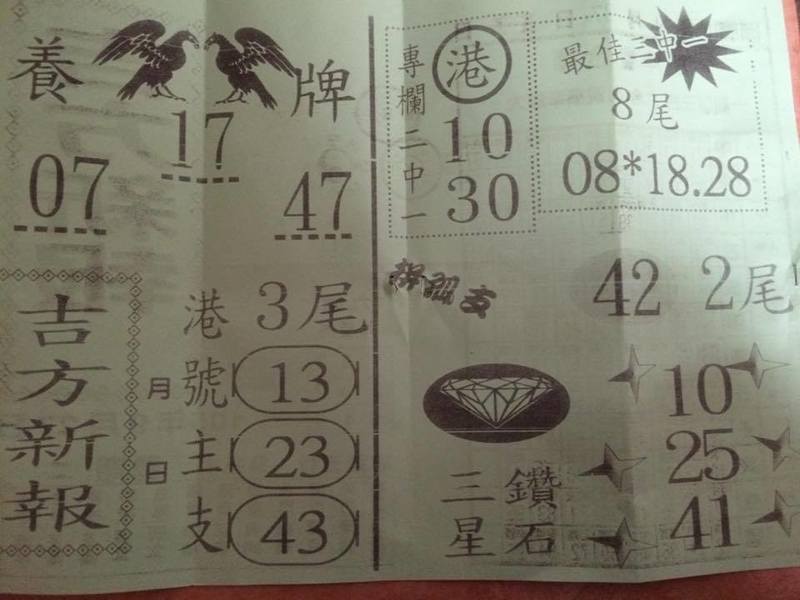 養 牌
17
07
47
吉方新報
月 日
港號主支
3尾
13
23
43
專欄二中一
港
10
30
最佳三中一
8尾
08*18.28
支
42 2尾
三星鑽石
10
25
41